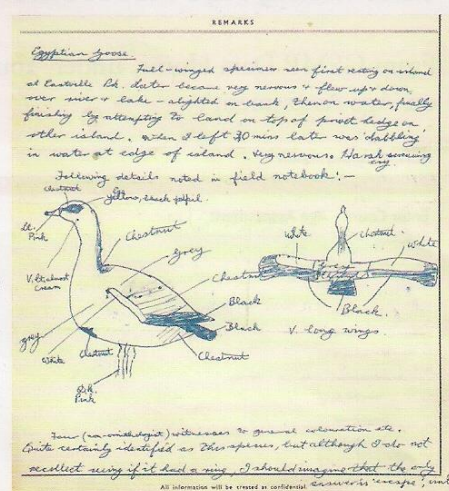 REMARKS
Egyptian Goose
Full-winged specimen seen first resting on island
at Eastville Pk. Later became very nervous & flew up & down
over river & lake - alighted on bank, then on water, finally
finishing by attempting to land on top of privet hedge on
other island. When I left 30 mins later was 'dabbling'
in water at edge of island. Very nervous. Harsh
cry
Following details noted in field notebook:-
Chestnut
yellow, black pupil
Lt.
Pink
Chestnut
Grey
V. lt.
Cream
Chestnut
Black
Black
Chestnut
grey
White
Chestnut
Dk.
Pink
White
Chestnut.
White
Grey
Black.
V. long wings.
Four (non-ornithologist) witnesses to general colouration etc.
Quite certainly identified as this species, but although I do not
recollect seeing if it had a ring, I should imagine that the only
answer is 'escape',
All information will be treated as confidential